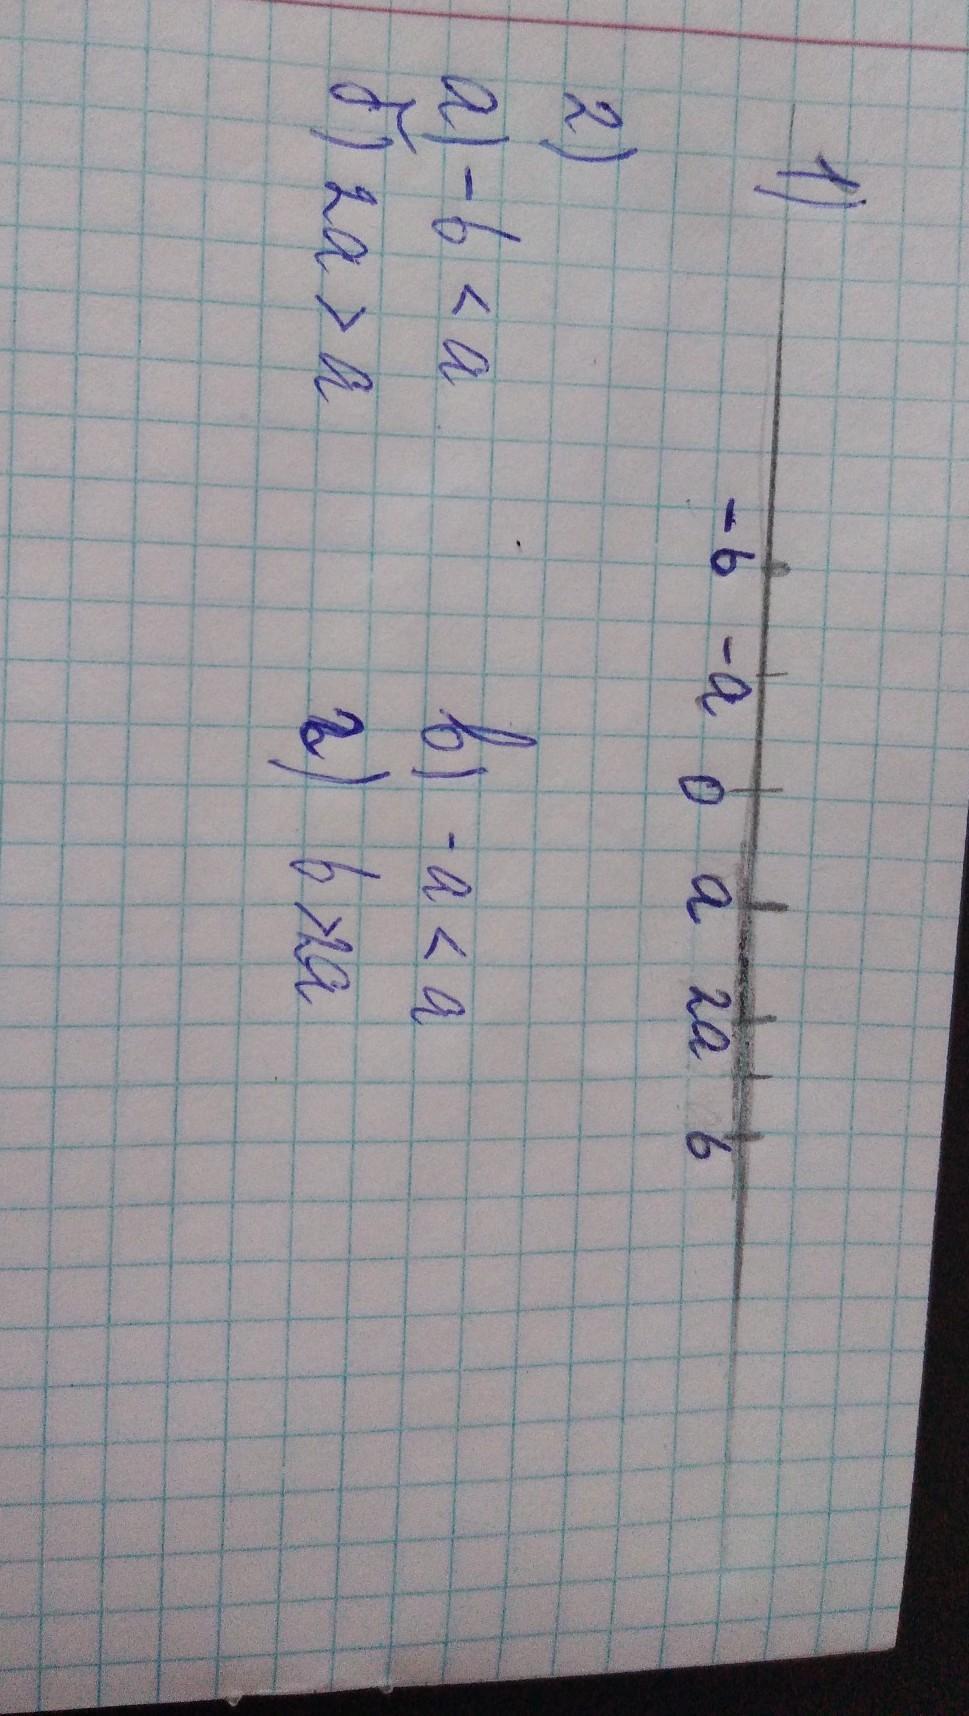 1)
-b -a 0 a 2a b
2)
а) -b < a в) -a < a
б) 2a > a г) b > 2a